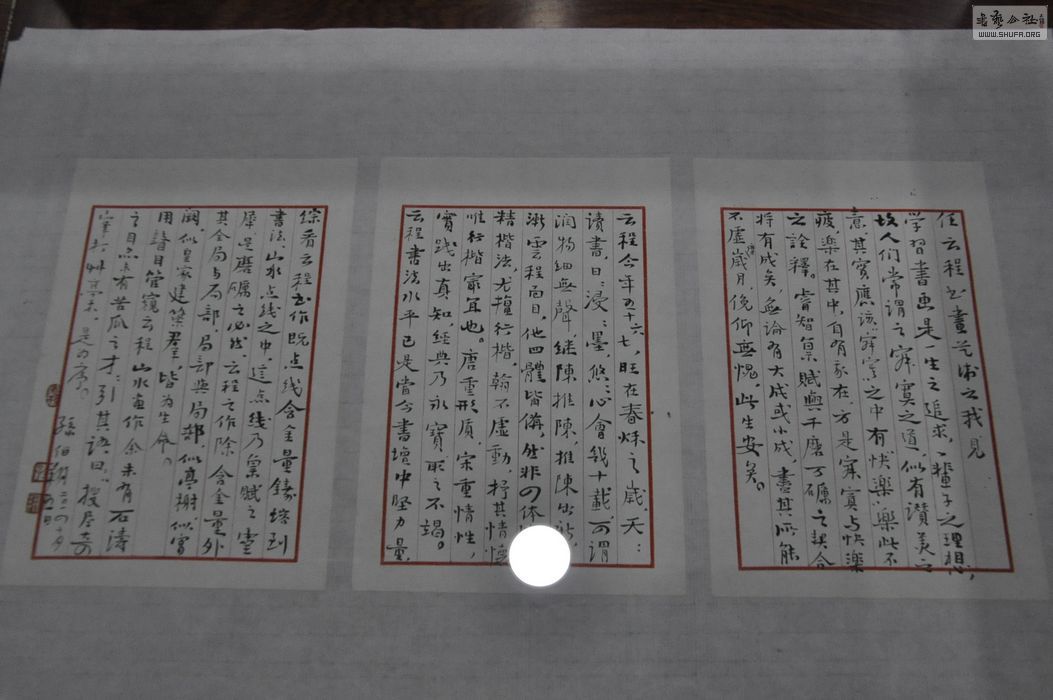 任云程书画艺术之我见
学习書画是一生之追求,一辈子之理想,
故人们常謂之寂寞之道,似有讚美之
意,其實應该寂寞之中有快樂樂此不
疲,樂在其中,自有家在方是寂寞与快樂
之詮釋。睿智禀賦與千磨万礪之契合
将有成矣,無論有大成或小成,盡其所能
不虚度歲月,俛仰無愧,此生安矣。
云程今年五十六七,旺在春秋之歲,天:
读書,日:浸:墨,悠:心會幾十載,可謂
润物细無聲,继陳推陳,推陳出新,
漸雲程面目,他四體皆備,然非四体
精楷法,尤擅行楷,翰不虚動,抒其情懷
唯行楷最耳也。唐重形质,宋重情性,
實践出真知,經典乃永寶取之不竭。
云程書法水平已是當今書壇中堅力量,
综看云程书作既点线含金量鎔培到
書法,山水点线之中,這点线乃禀賦之
犀,是磨礪之必然,云程之作除含金量外
其全局与局部,局部與局部,似亭榭似宫
阙,似皇家建築羣,皆为生命。
用詩目管窺云程山水画作余未有石濤
之目亦未有苦瓜之才;引其语曰:搜尽奇
峰打草稿,是为序。
孫伯翔二〇一四年十月
WWW.SHUFA.ORG